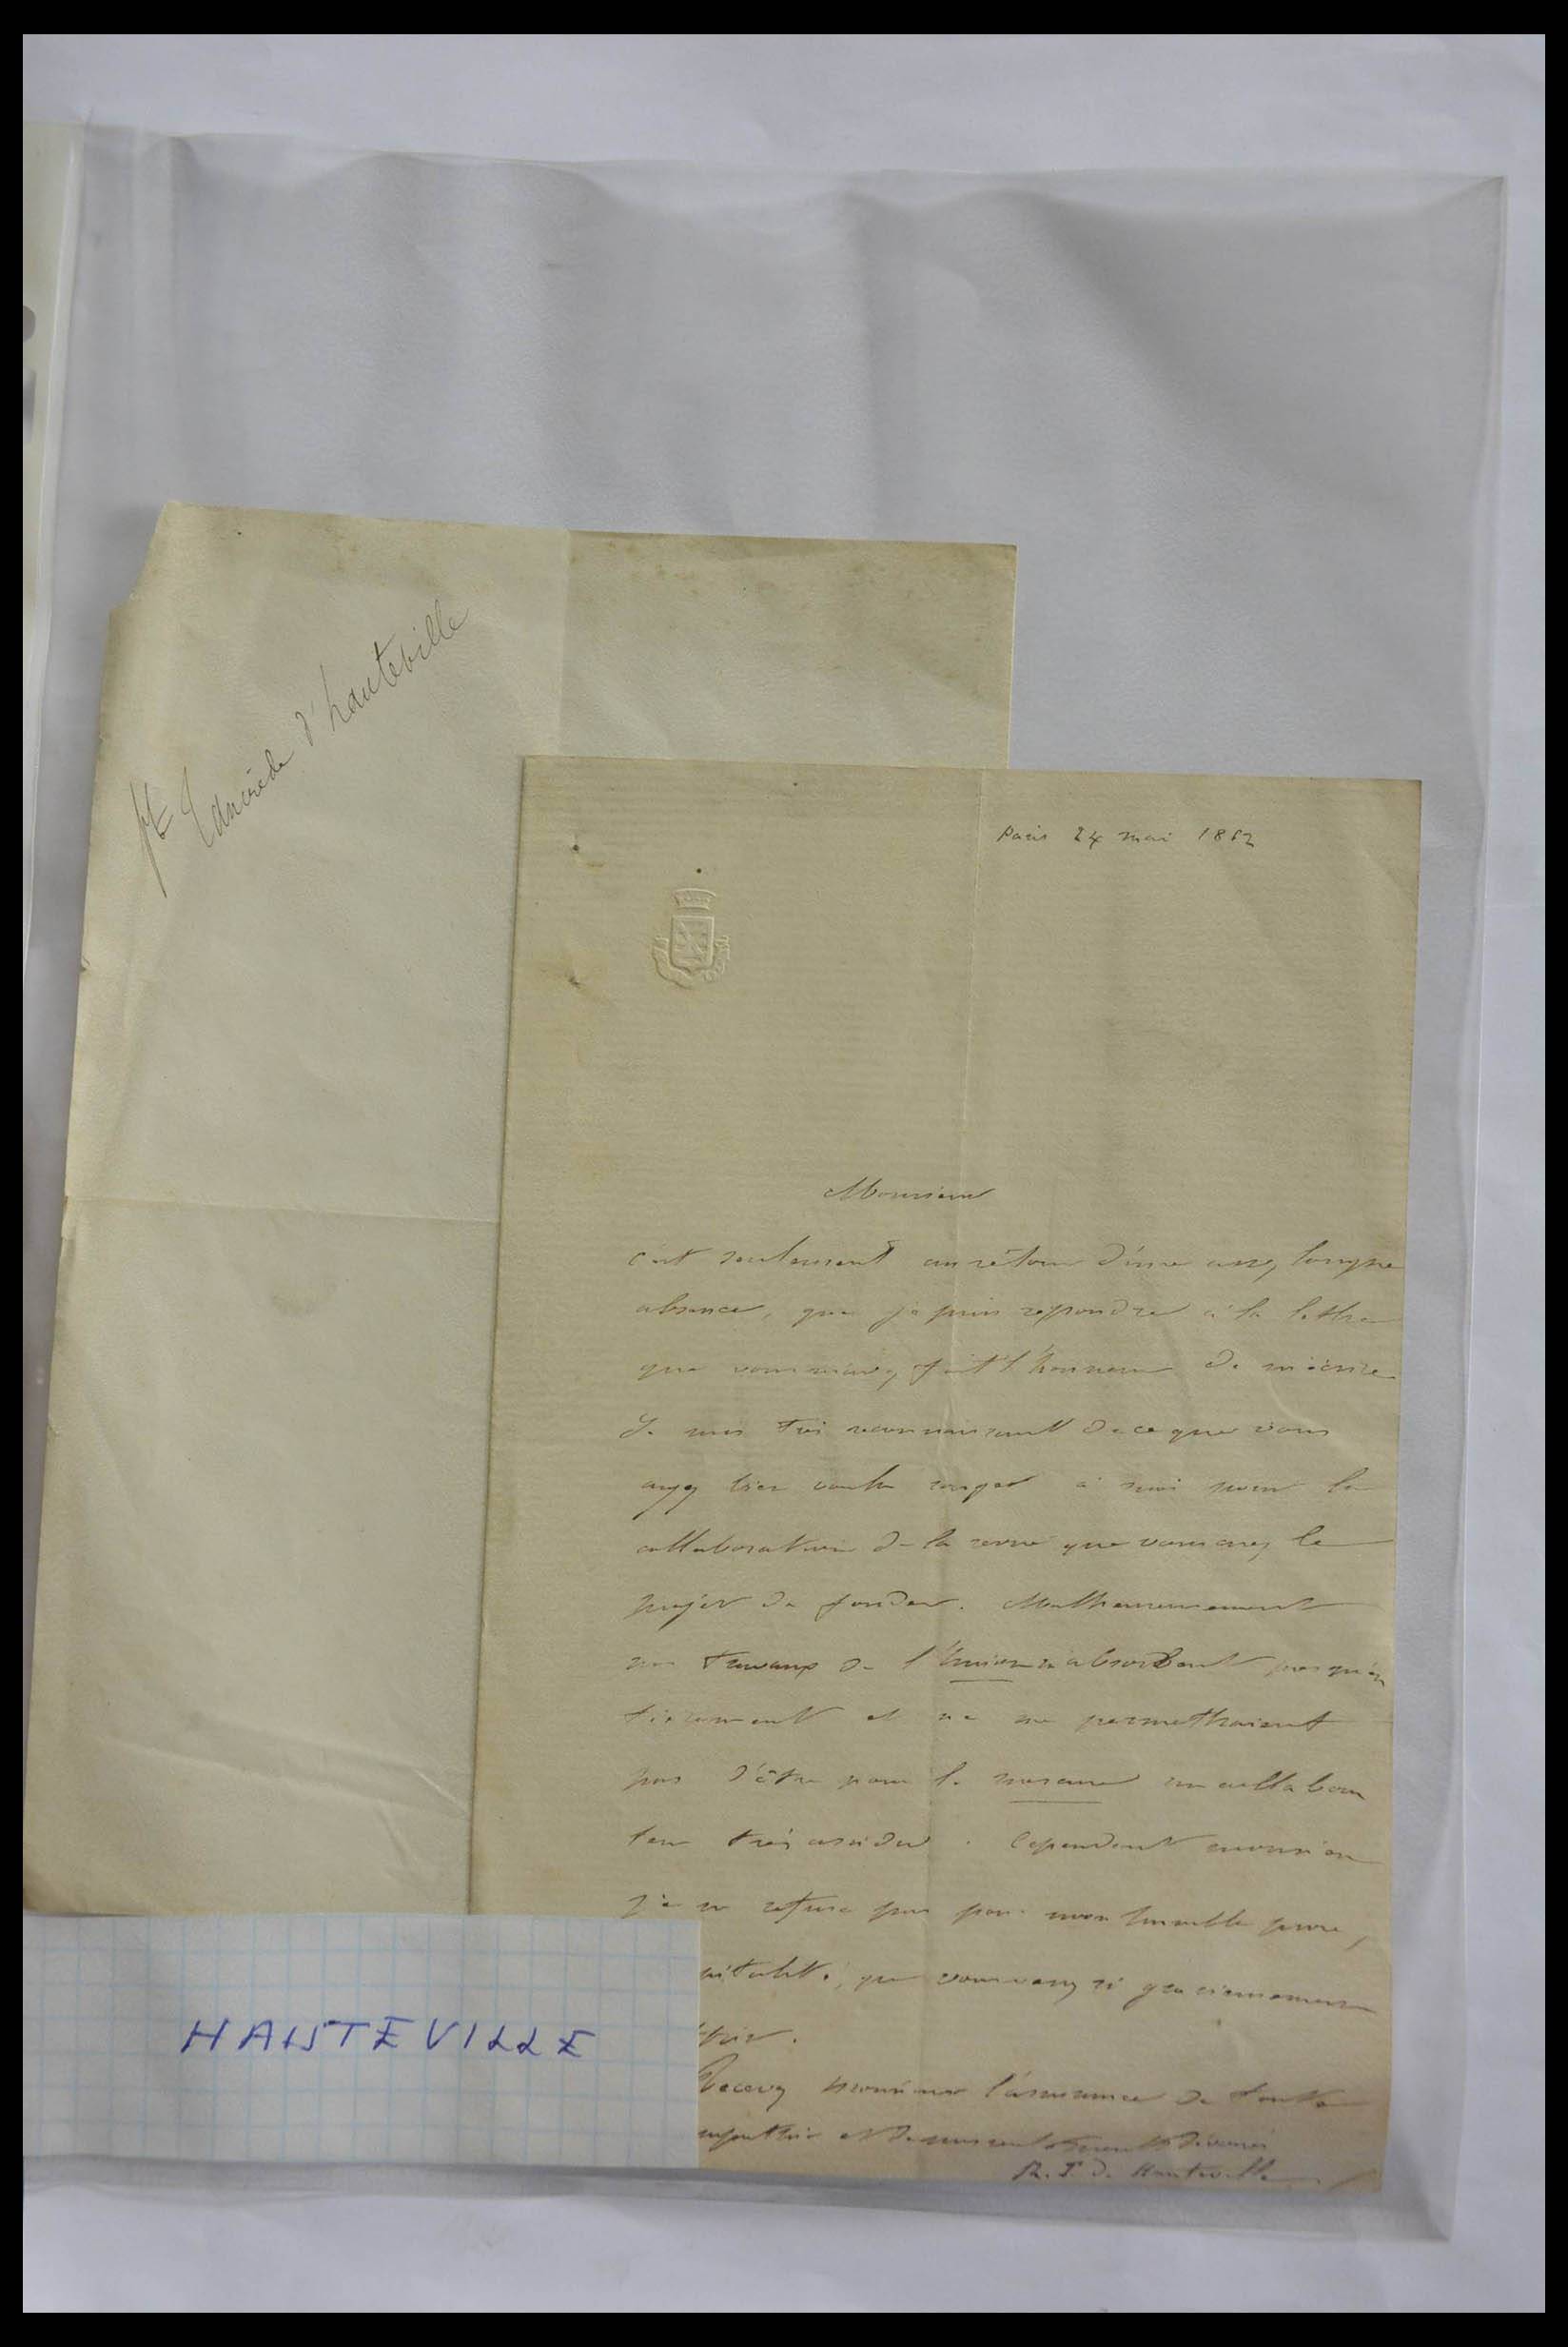 Tancrède d'hauteville
Paris 24 mai 1862
Monsieur
c'est seulement au retour d'une assez longue
absence, que je puis repondre à la lettre
que vous m'avez fait l'honneur de m'écrire
Je suis très reconnaissant de ce que vous
ayez bien voulu songer à moi pour la
collaboration de la revue que vous avez le
projet de fonder. Malheureusement
mes travaux de l'Union m'absorbent presqu'en
tierement et ne me permettraient
pas d'être pour le une collabora
teur très assidu. Cependant
je ne refuse pas pour mon humble prose,
que vous m'avez si gracieusement
Recevez Monsieur l'assurance de toute
et de mes sentiments dévoués
R. T. d. Hauteville
HAUTEVILLE